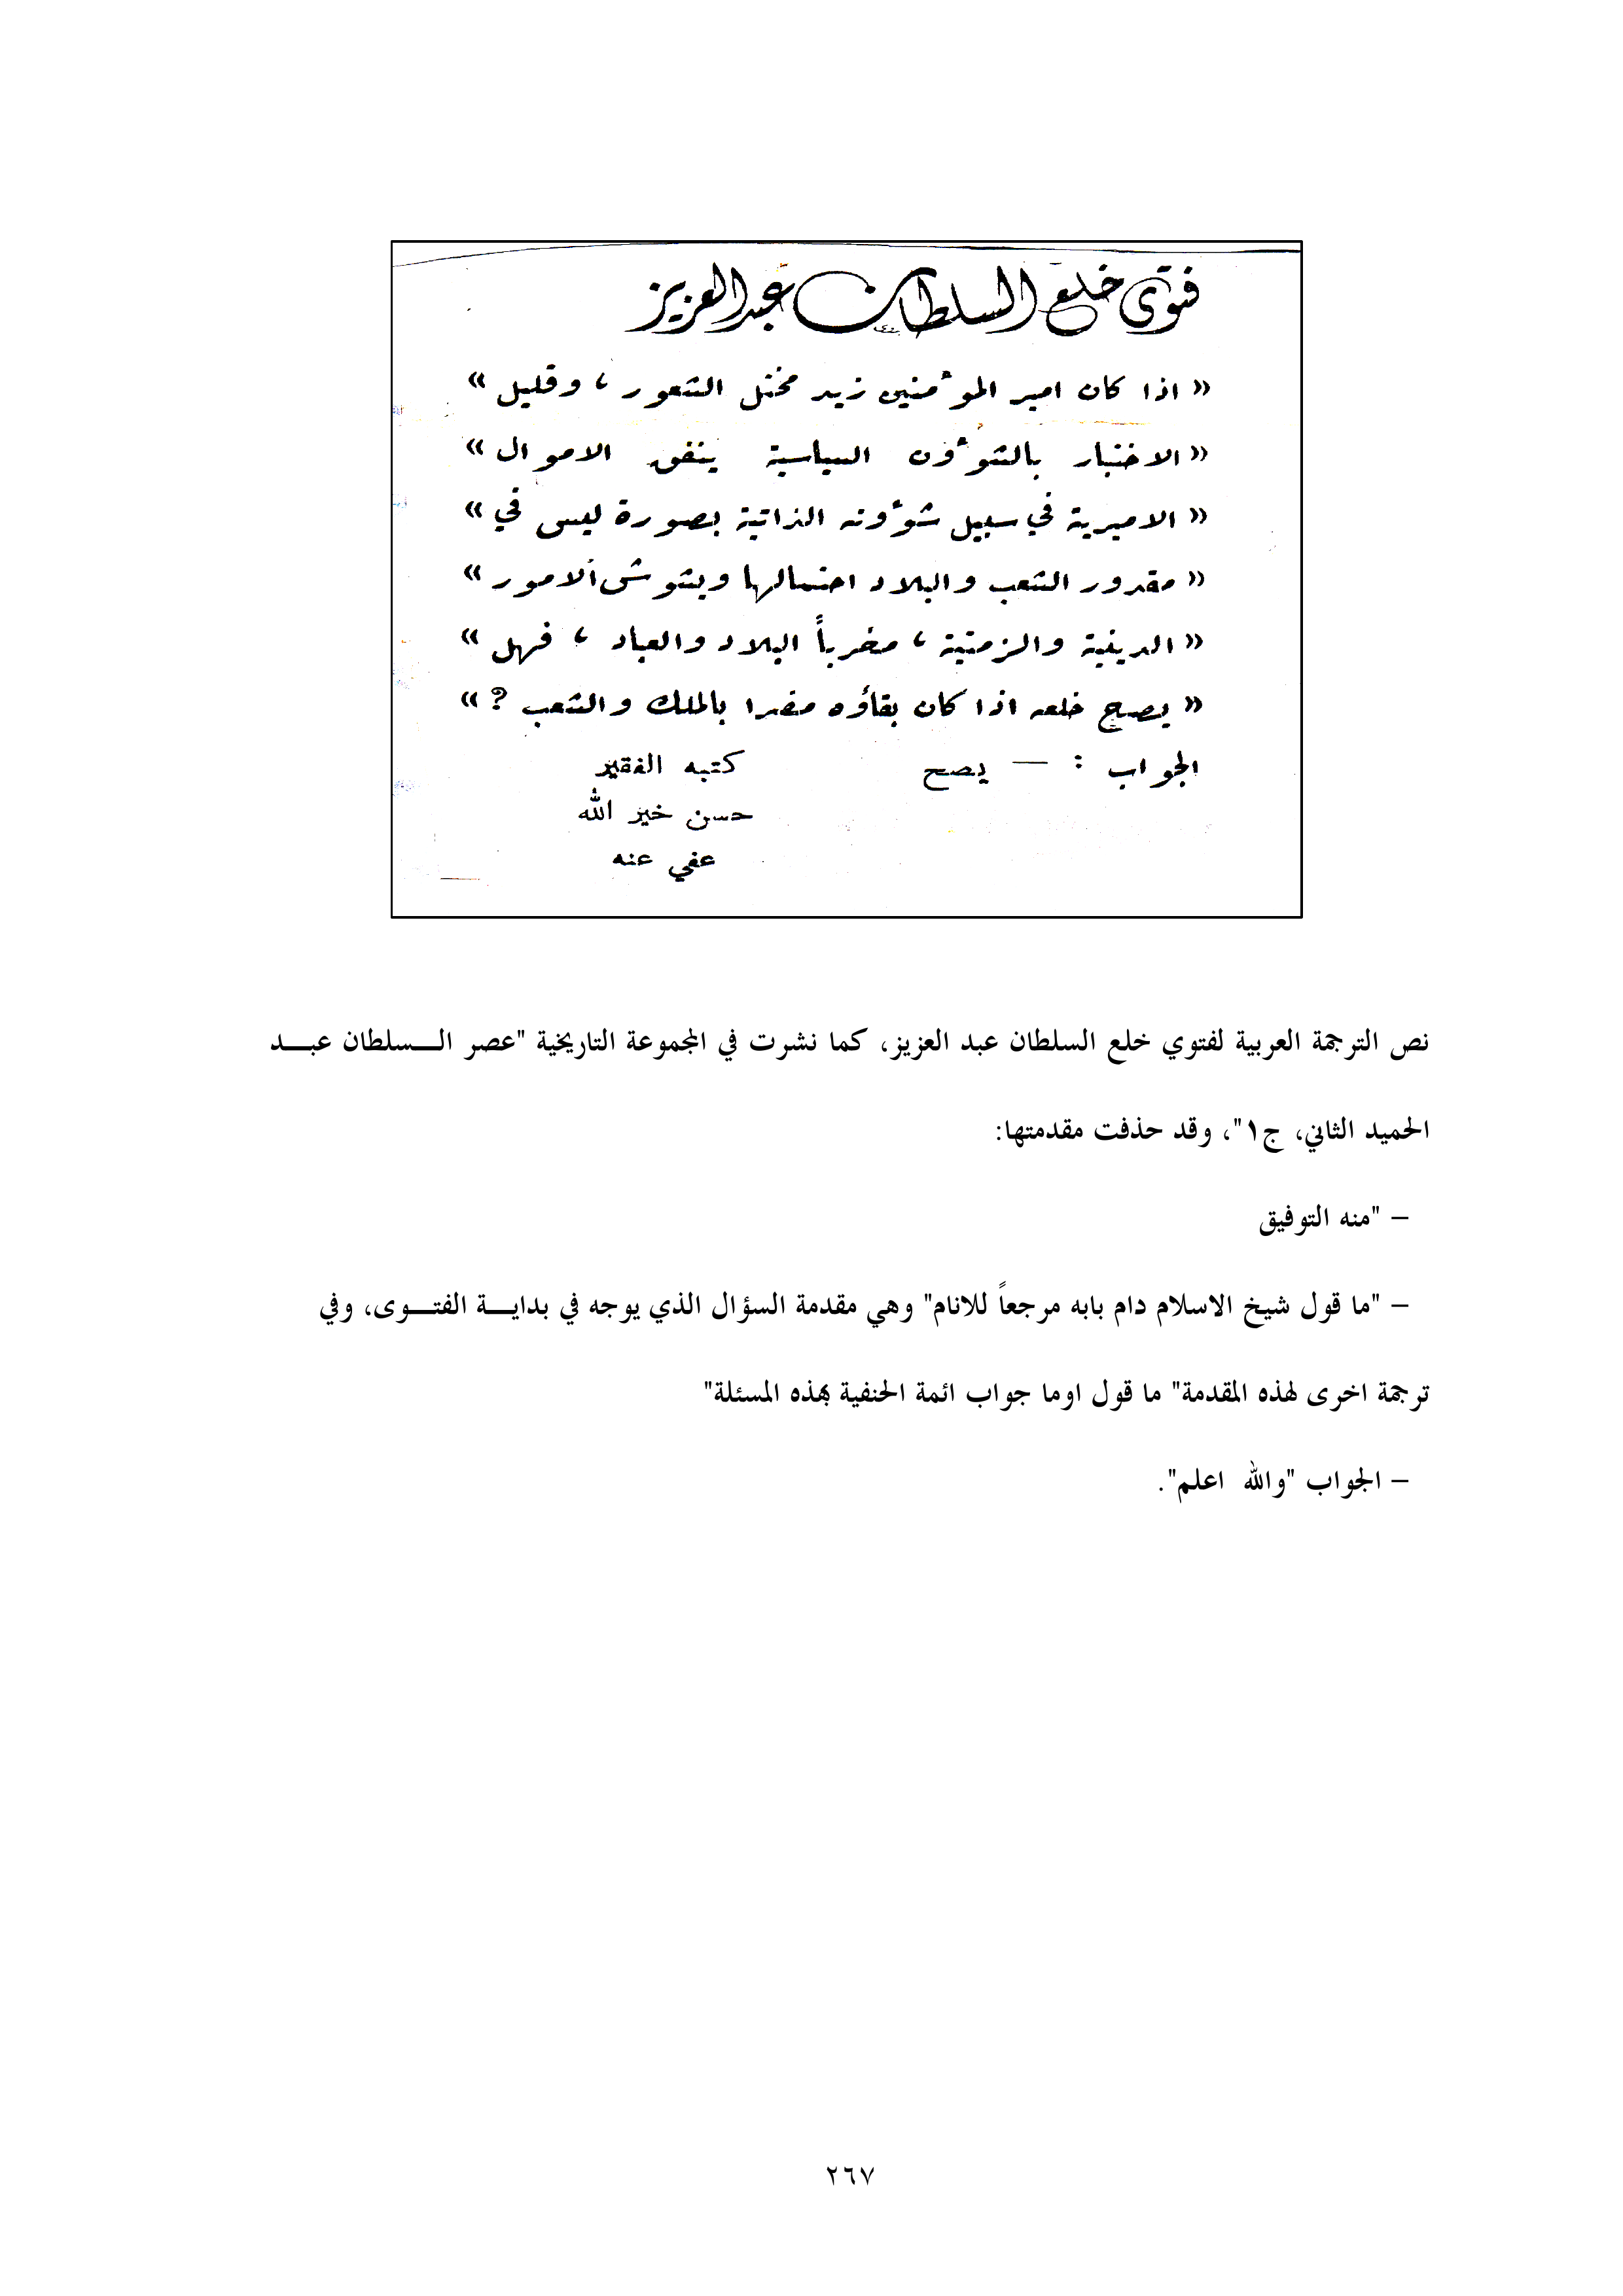 فتوى خلع السلطان عبد العزيز
« اذا كان امير المؤمنين زيد مختل الشعور ، وقليل »
« الاختبار بالشوؤون السياسية ينفق الاموال »
« الاميرية في سبيل شوؤونه الذاتية بصورة ليس في »
« مقدور الشعب والبلاد احتمالها ويشوش الامور »
« الدينية والزمنية ، مخرباً البلاد والعباد ، فهل »
« يصح خلعه اذا كان بقاؤه مضرا بالملك والشعب ؟ »
الجواب : — يصح كتبه الفقير
حسن خير الله
عفي عنه
نص الترجمة العربية لفتوي خلع السلطان عبد العزيز، كما نشرت في المجموعة التاريخية "عصر الـسلطان عبـد
الحميد الثاني، ج١"، وقد حذفت مقدمتها:
– "منه التوفيق
– "ما قول شيخ الاسلام دام بابه مرجعاً للانام" وهي مقدمة السؤال الذي يوجه في بدايـة الفتـوى، وفي
ترجمة اخرى لهذه المقدمة" ما قول اوما جواب ائمة الحنفية بهذه المسئلة"
– الجواب "والله اعلم".
٢٦٧